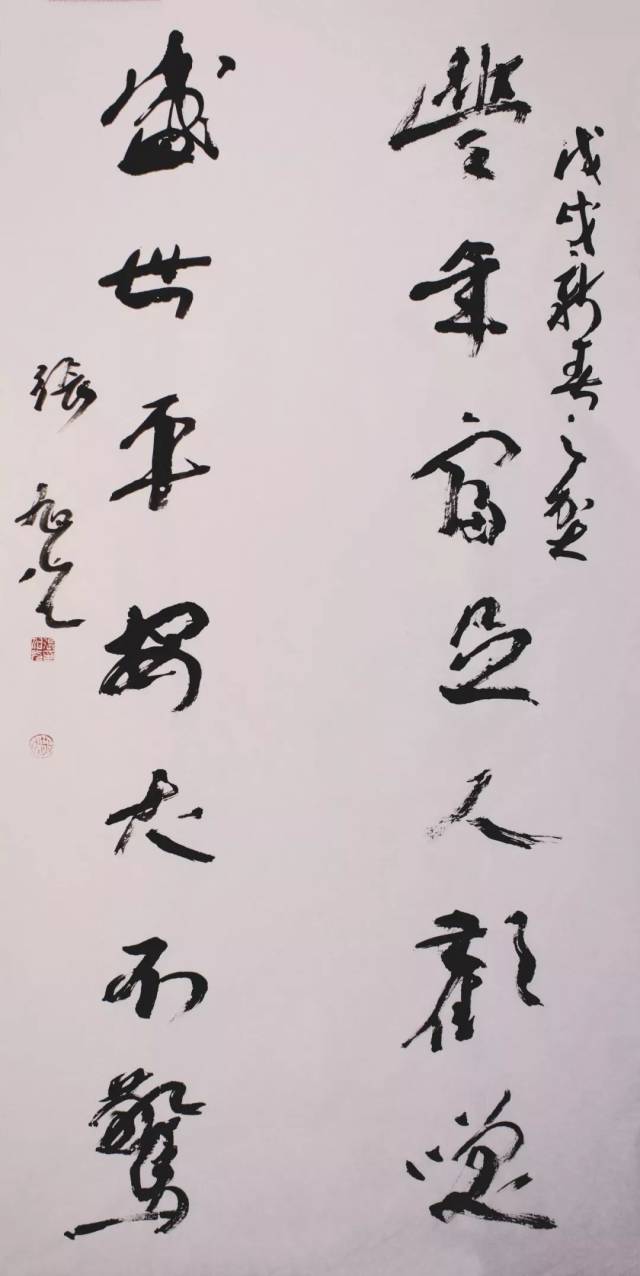 戊戌新春之
豐年富足人歡悅
盛世平安犬不驚
張旭光